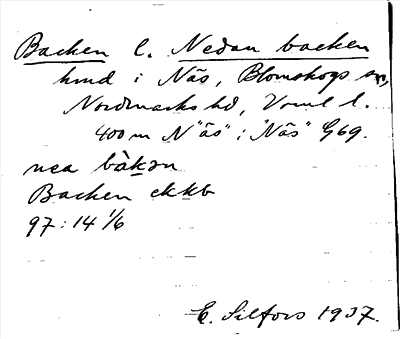 Backen l. Nedan backen
hmd i Näs, Blomskogs sn,
Nordmarks hd, Vrml l.
400 m N "äs" i "Näs" G69.
nea bàkən
Backen ekkb
97:14 1/6
E. Silfors 1937.